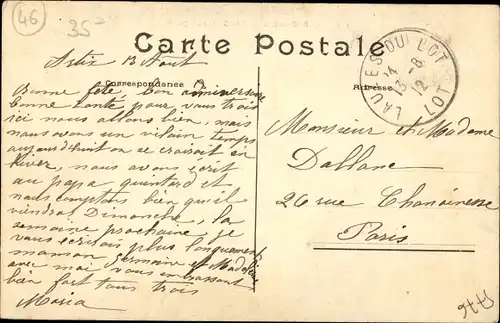 46
35²
Carte Postale
Artix 13 Aout
Correspondance
Adresse
LAUZES DU LOT
14
13-8
12
LOT
Bonne fête, bon anniversaire
bonne santé pour vous trois
ici nous allons bien, mais
nous avons un vilain temps
aujourd'huit on se croirait en
hiver, nous avons écrit
au papa quintard et
nous comptons bien qu'il
viendra Dimanche, la
semaine prochaine je
vous ecrirais plus longuement
maman Germaine et Madeleine
avec moi vous embrassent
bien fort tous trois
Maria
Monsieur et Madame
Dallane
26 rue Chanoinesse
Paris